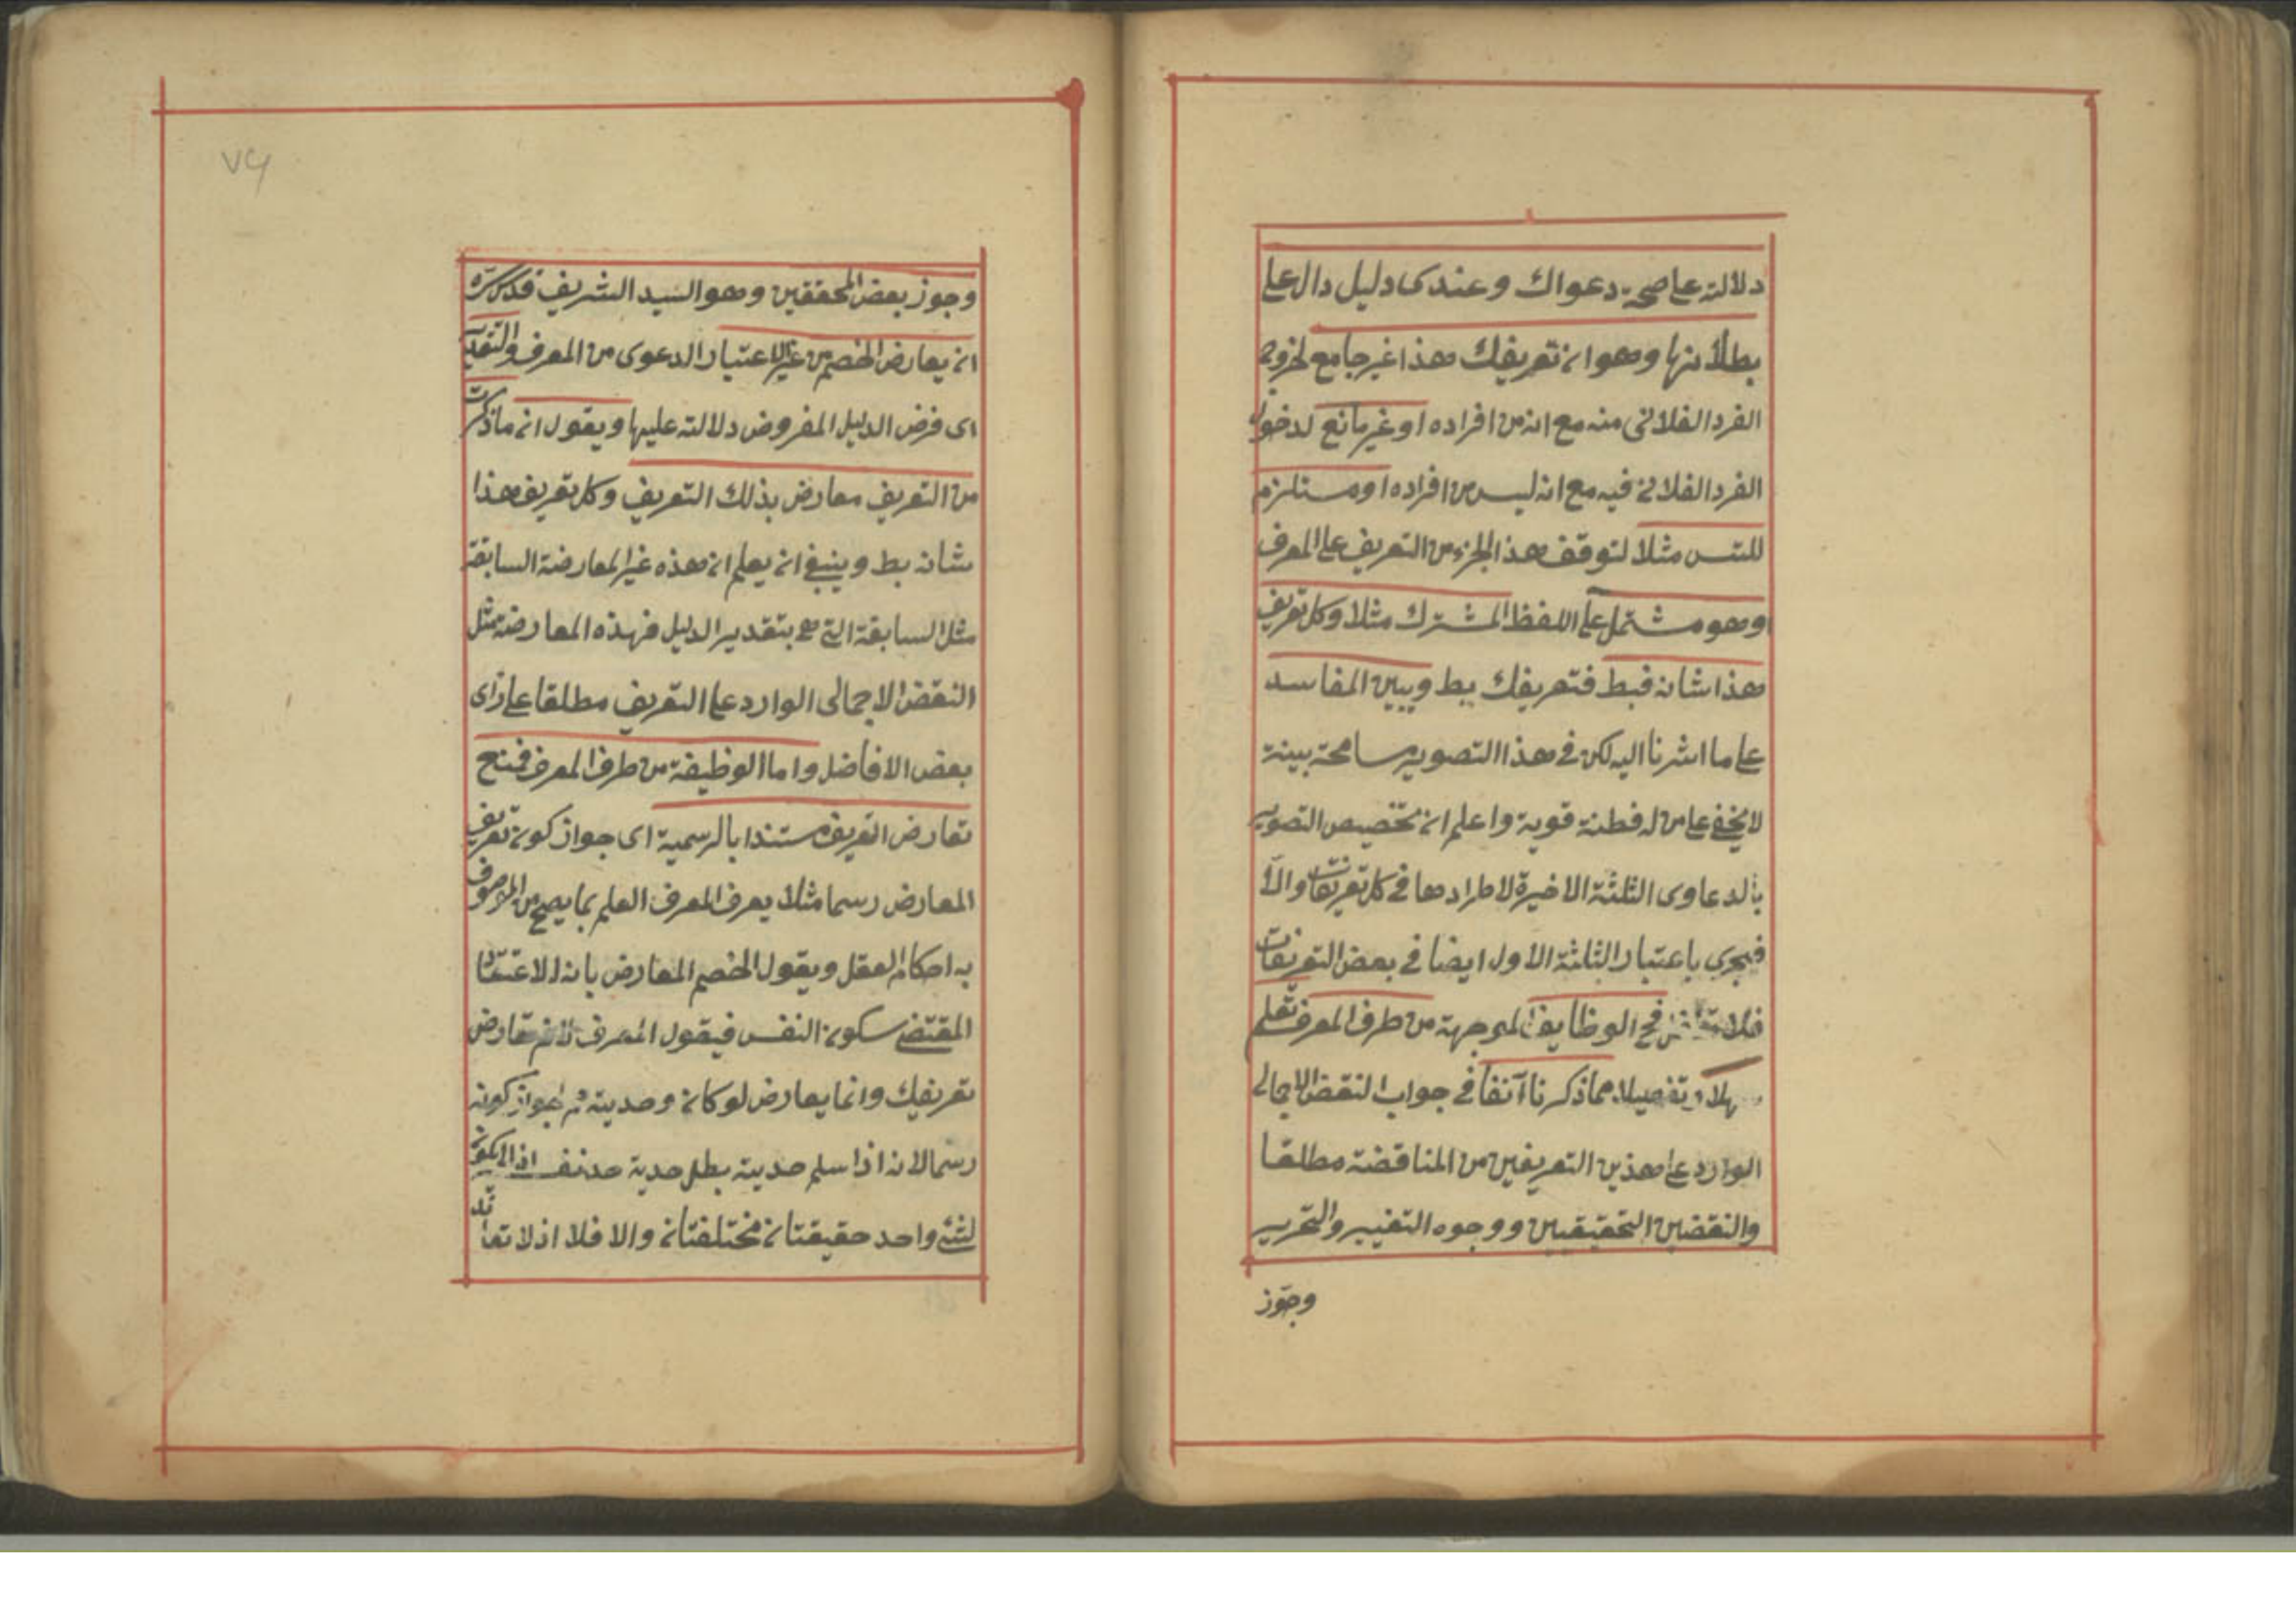 دلالته على صحة دعواك وعندى دليل دال على
بطلانها وهو ان تعريفك هذا غير جامع لخروج
الفرد الفلانى منه مع انه من افراده او غير مانع لدخول
الفرد الفلانى فيه مع انه ليس من افراده او مستلزم
للتس مثلا لتوقف هذا الجزء من التعريف على المعرف
وهو مشتمل على اللفظ المشترك مثلا وكل تعريف
هذا شانه فبط فتعريفك بط ويبين المفاسد
على ما اشرنا اليه لكن فى هذا التصوير مسامحة بينة
لا يخفى على من له فطنة قوية واعلم ان تخصيص التصوير
بالدعاوى الثلثة الاخيرة لاطرادها فى كل تعريفات والا
فيجرى باعتبار الثلثة الاول ايضا فى بعض التعريفات
فلا فح الوظايف الموجهة من طرف المعرف تعلم
تفصيلا مما ذكرنا آنفا فى جواب النقض الاجمالى
الوارد على هذين التعريفين من المناقضة مطلقا
والنقضين التحقيقيين ووجوه التغيير والتحرير
وجوز
٧٦
وجوز بعض المحققين وهو السيد الشريف قدس سره
ان يعارض الخصم من غير اعتبار الدعوى من المعرف والتقدير
اى فرض الدليل المفروض دلالته عليها ويقول ان ما ذكرت
من التعريف معارض بذلك التعريف وكل تعريف هذا
شانه بط وينبغى ان يعلم ان هذه غير المعارضة السابقة
مثل السابقة التى هى بتقدير الدليل فهذه المعارضة مثل
النقض الاجمالى الوارد على التعريف مطلقا على رأى
بعض الافاضل واما الوظيفة من طرف المعرف فمنح
تعارض التعريف مستندا بالرسمية اى جواز كون تعريف
المعارض رسما مثلا يعرف المعرف العلم بما يصح من الموصوف
به احكام العقل ويقول الخصم المعارض بانه الاعتقاد
المقتضى سكون النفس فيقول المعرف لانم تعارض
تعريفيك وانما يعارض لو كان وحديته ثم لجواز كونه
رسما لانه اذا سلم حديته بطل حدية حد نفسه اذ لا يكون
لشئ واحد حقيقتان مختلفتان والا فلا اذ لا تعاند